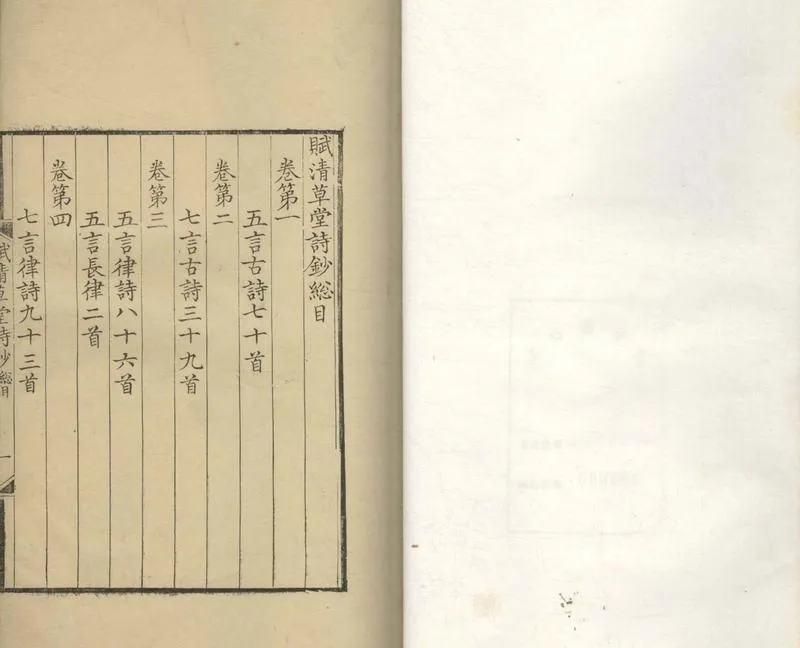 賦清草堂詩鈔総目
卷第一
五言古詩七十首
卷第二
七言古詩三十九首
卷第三
五言律詩八十六首
五言長律二首
卷第四
七言律詩九十三首
賦清草堂詩鈔 総目 一